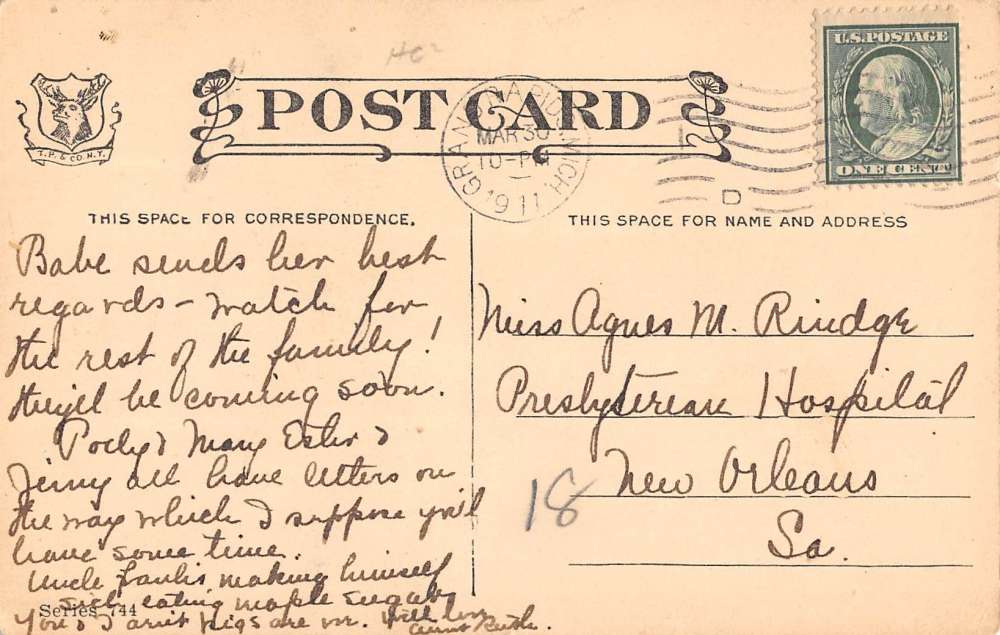 POST CARD
T. P. & CO. N.Y.
GRAND RAPIDS, MICH.
MAR 30
10-PM
1911
D
U.S. POSTAGE
ONE CENT
THIS SPACE FOR CORRESPONDENCE.
Babe sends her best
regards – watch for
the rest of the family!
they'll be coming soon.
& Mary Ester &
Jenny all have letters on
the way which I suppose you'll
have some time.
Uncle making himself
sick eating maple sugar
You & I ain't pigs are we. Will love
Aunt Ruth.
Series 744
THIS SPACE FOR NAME AND ADDRESS
Miss Agnes M. Rindge
Presbyterean Hospital
New Orleans
La.
18